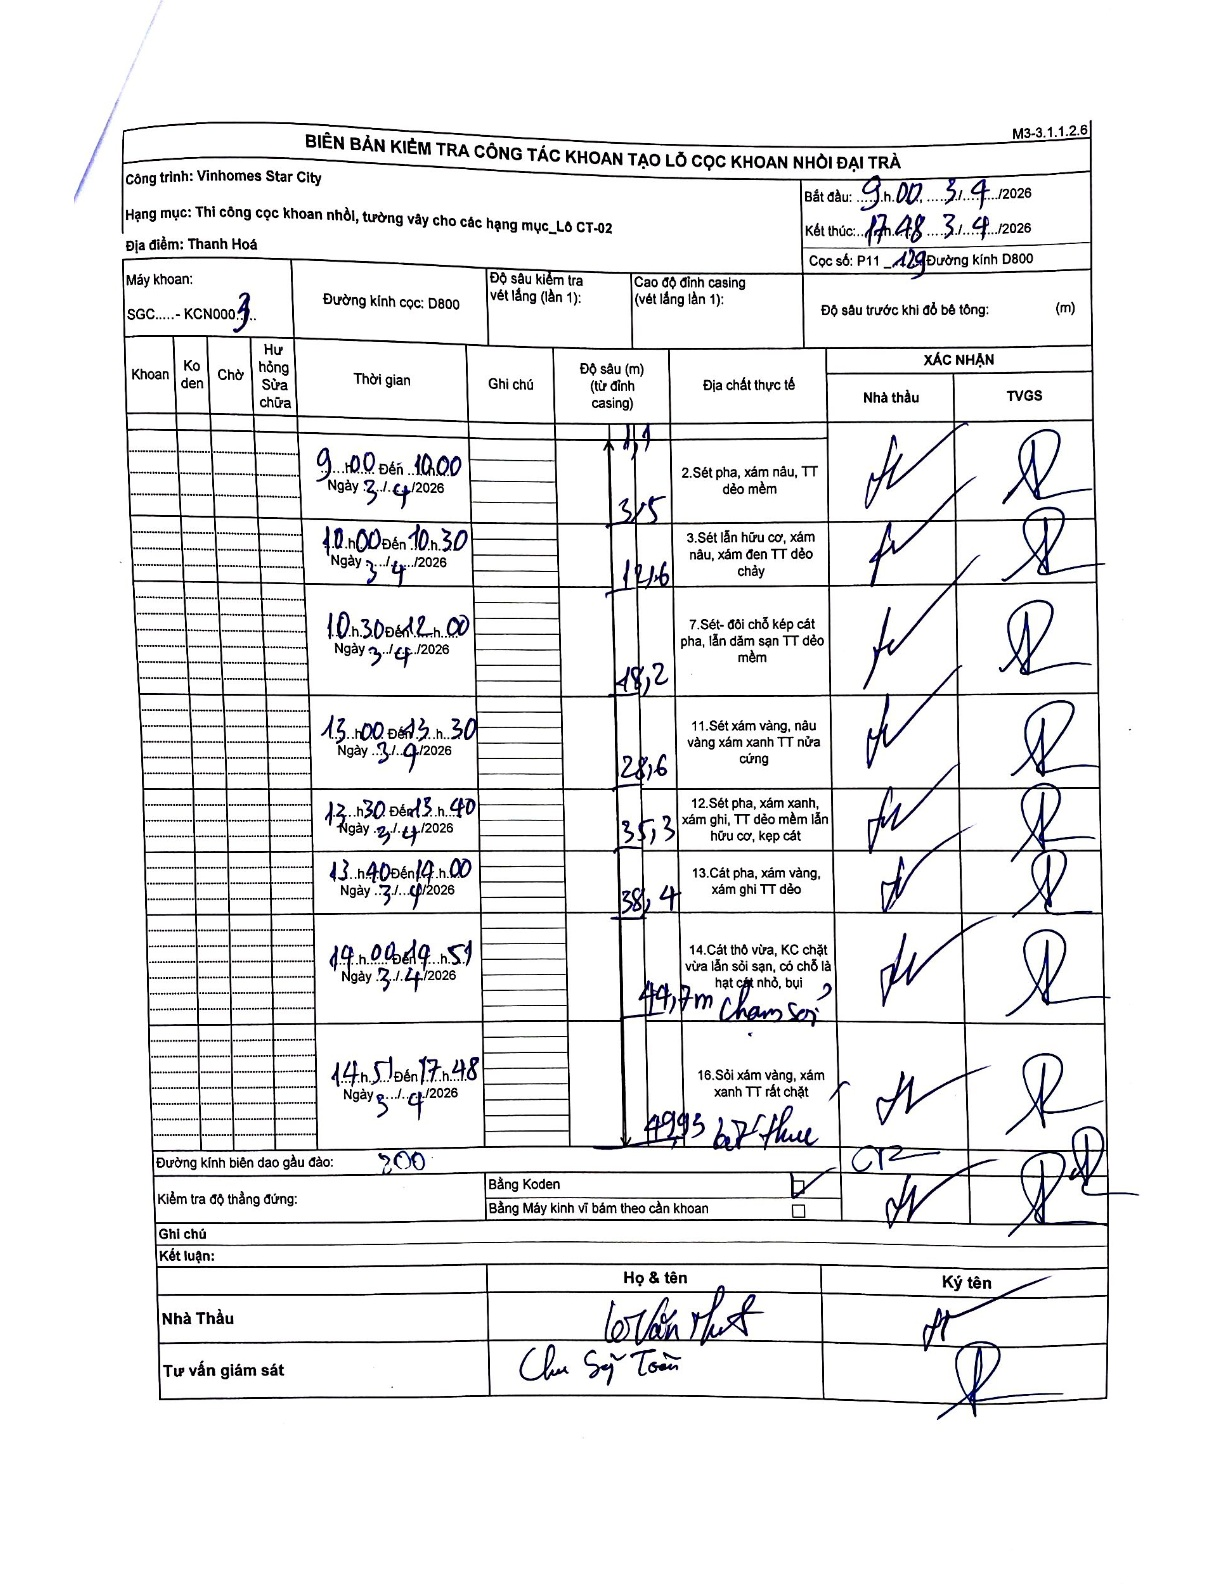 M3-3.1.1.2.6
BIÊN BẢN KIỂM TRA CÔNG TÁC KHOAN TẠO LỖ CỌC KHOAN NHỒI ĐẠI TRÀ
Công trình: Vinhomes Star City
Hạng mục: Thi công cọc khoan nhồi, tường vây cho các hạng mục_Lô CT-02
Địa điểm: Thanh Hoá
Bắt đầu: 9.h.00 3/4/2026
Kết thúc: 17h48 3/4/2026
Cọc số: P11_129 Đường kính D800
Máy khoan:
SGC.....- KCN0003
Đường kính cọc: D800
Độ sâu kiểm tra
vét lắng (lần 1):
Cao độ đỉnh casing
(vét lắng lần 1):
Độ sâu trước khi đổ bê tông: (m)
Khoan
Ko
den
Chờ
Hư
hỏng
Sửa
chữa
Thời gian
Ghi chú
Độ sâu (m)
(từ đỉnh
casing)
Địa chất thực tế
XÁC NHẬN
Nhà thầu
TVGS
1,1
9h00 Đến 10h00
Ngày 3/4/2026
3,5
2.Sét pha, xám nâu, TT
dẻo mềm
10.h00 Đến 10.h.30
Ngày 3/4/2026
12,6
3.Sét lẫn hữu cơ, xám
nâu, xám đen TT dẻo
chảy
10.h.30 Đến 12.h.00
Ngày 3/4/2026
18,2
7.Sét- đôi chỗ kép cát
pha, lẫn dăm sạn TT dẻo
mềm
13.h00 Đến 13.h.30
Ngày 3/4/2026
28,6
11.Sét xám vàng, nâu
vàng xám xanh TT nửa
cứng
13.h30 Đến 13.h.40
Ngày 3/4/2026
35,3
12.Sét pha, xám xanh,
xám ghi, TT dẻo mềm lẫn
hữu cơ, kẹp cát
13.h40 Đến 14.h.00
Ngày 3/4/2026
38,4
13.Cát pha, xám vàng,
xám ghi TT dẻo
14.h.00 Đến 14.h.51
Ngày 3/4/2026
14.Cát thô vừa, KC chặt
vừa lẫn sỏi sạn, có chỗ là
hạt cát nhỏ, bụi
44,7m chạm sỏi
14.h.51 Đến 17.h.48
Ngày 3/4/2026
16.Sỏi xám vàng, xám
xanh TT rất chặt
49,93 kết thúc
Đường kính biên dao gầu đào: 800
Kiểm tra độ thẳng đứng:
Bằng Koden
Bằng Máy kinh vĩ bám theo cần khoan
Ghi chú
Kết luận:
Họ & tên
Ký tên
Nhà Thầu
Tư vấn giám sát
Chu Sỹ Toàn